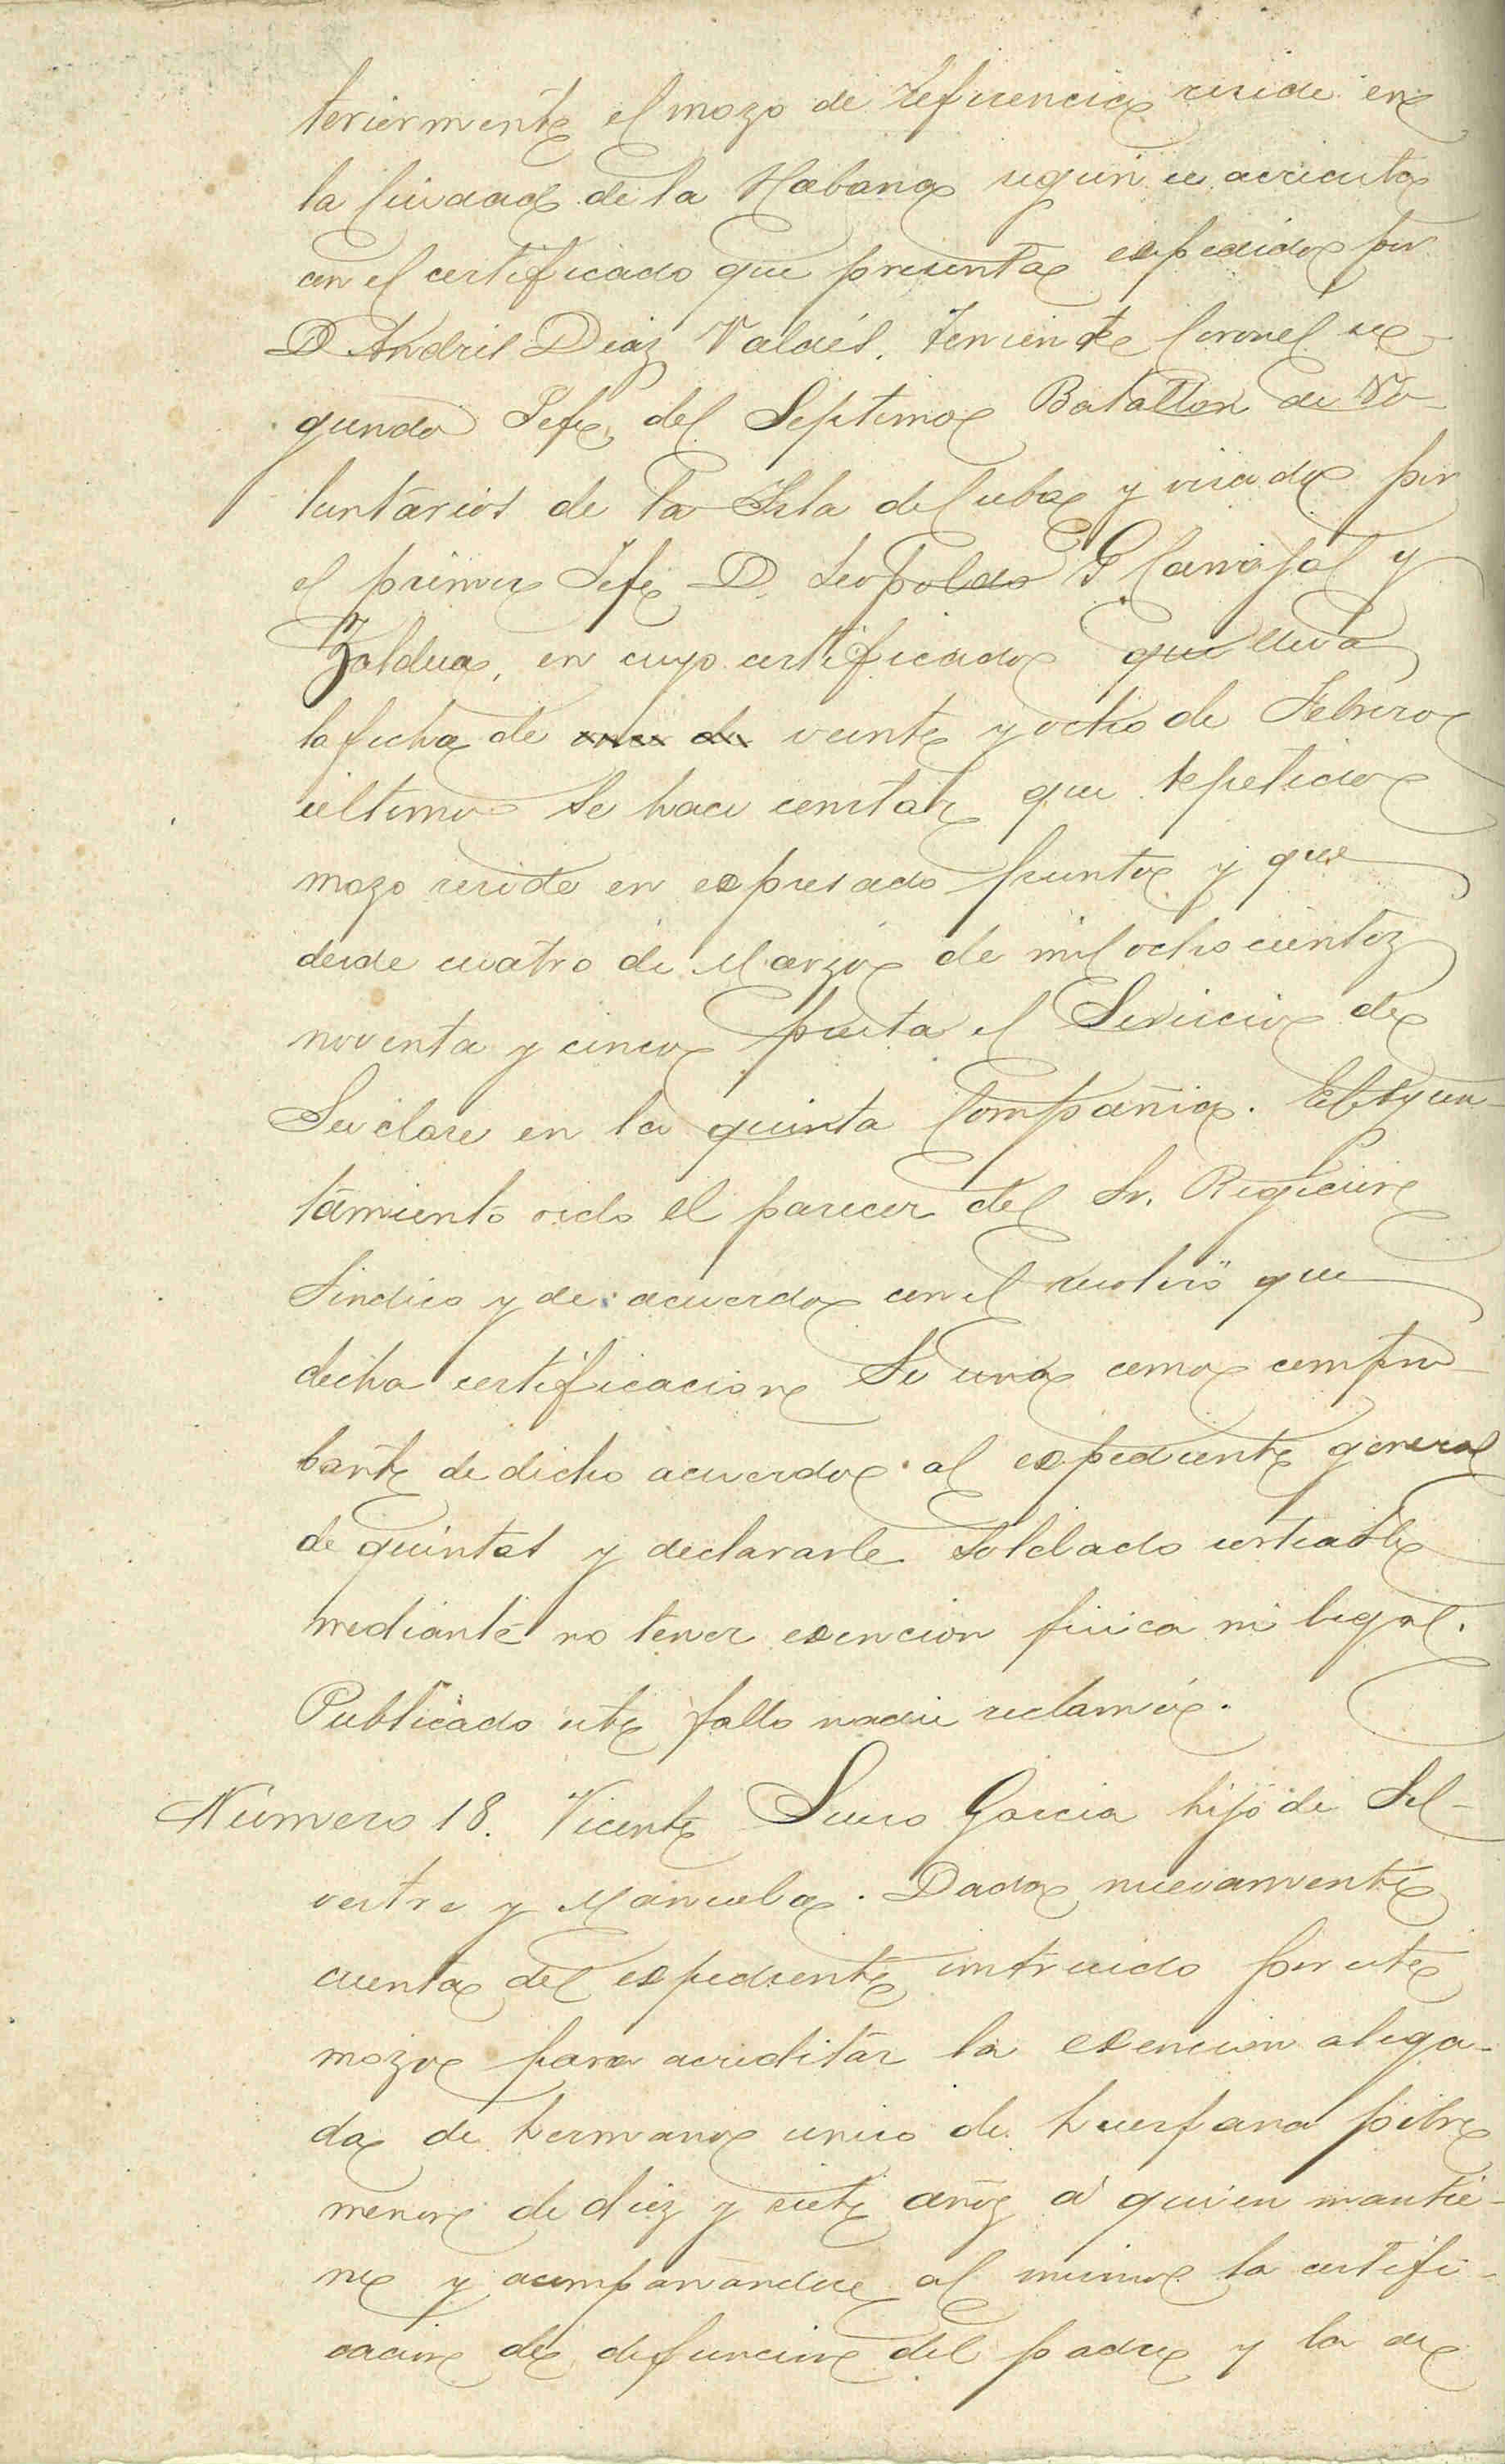 teriormente el mozo de referencia reside en
la Ciudad de la Habana segun se acredita
con el certificado que presenta expedido por
D Andrés Diaz Valdés, Teniente Coronel se-
gundo Jefe del Septimo Batallon de Vo-
luntarios de la Isla de Cuba y visado por
el primer Jefe D. Leopoldo G Carvajal y
Zaldua, en cuyo certificado que lleva
la fecha de veinte y ocho de Febrero
ultimo se hace constar que repetido
mozo reside en expresado punto y que
desde cuatro de Marzo de mil ochocientos
noventa y cinco presta el Servicio de
Su clase en la quinta Compañia. El Ayun-
tamiento oido el parecer del Sr. Regidor
Sindico y de acuerdo con el resolvió que
dicha certificacion Se una como compro-
bante de dicho acuerdo al expediente general
de quintas y declararle Soldado sorteable
mediante no tener exencion fisica ni legal.
Publicado este fallo nadie reclamó.
Número 18. Vicente Suero Garcia hijo de Sil-
vestre y Manuela. Dada nuevamente
cuenta del expediente instruido por este
mozo para acreditar la exencion alega-
da de hermano unico de huerfana pobre
menor de diez y siete años á quien mantie-
ne y acompañandose al mismo la certifi-
cacion de defuncion del padre y la de